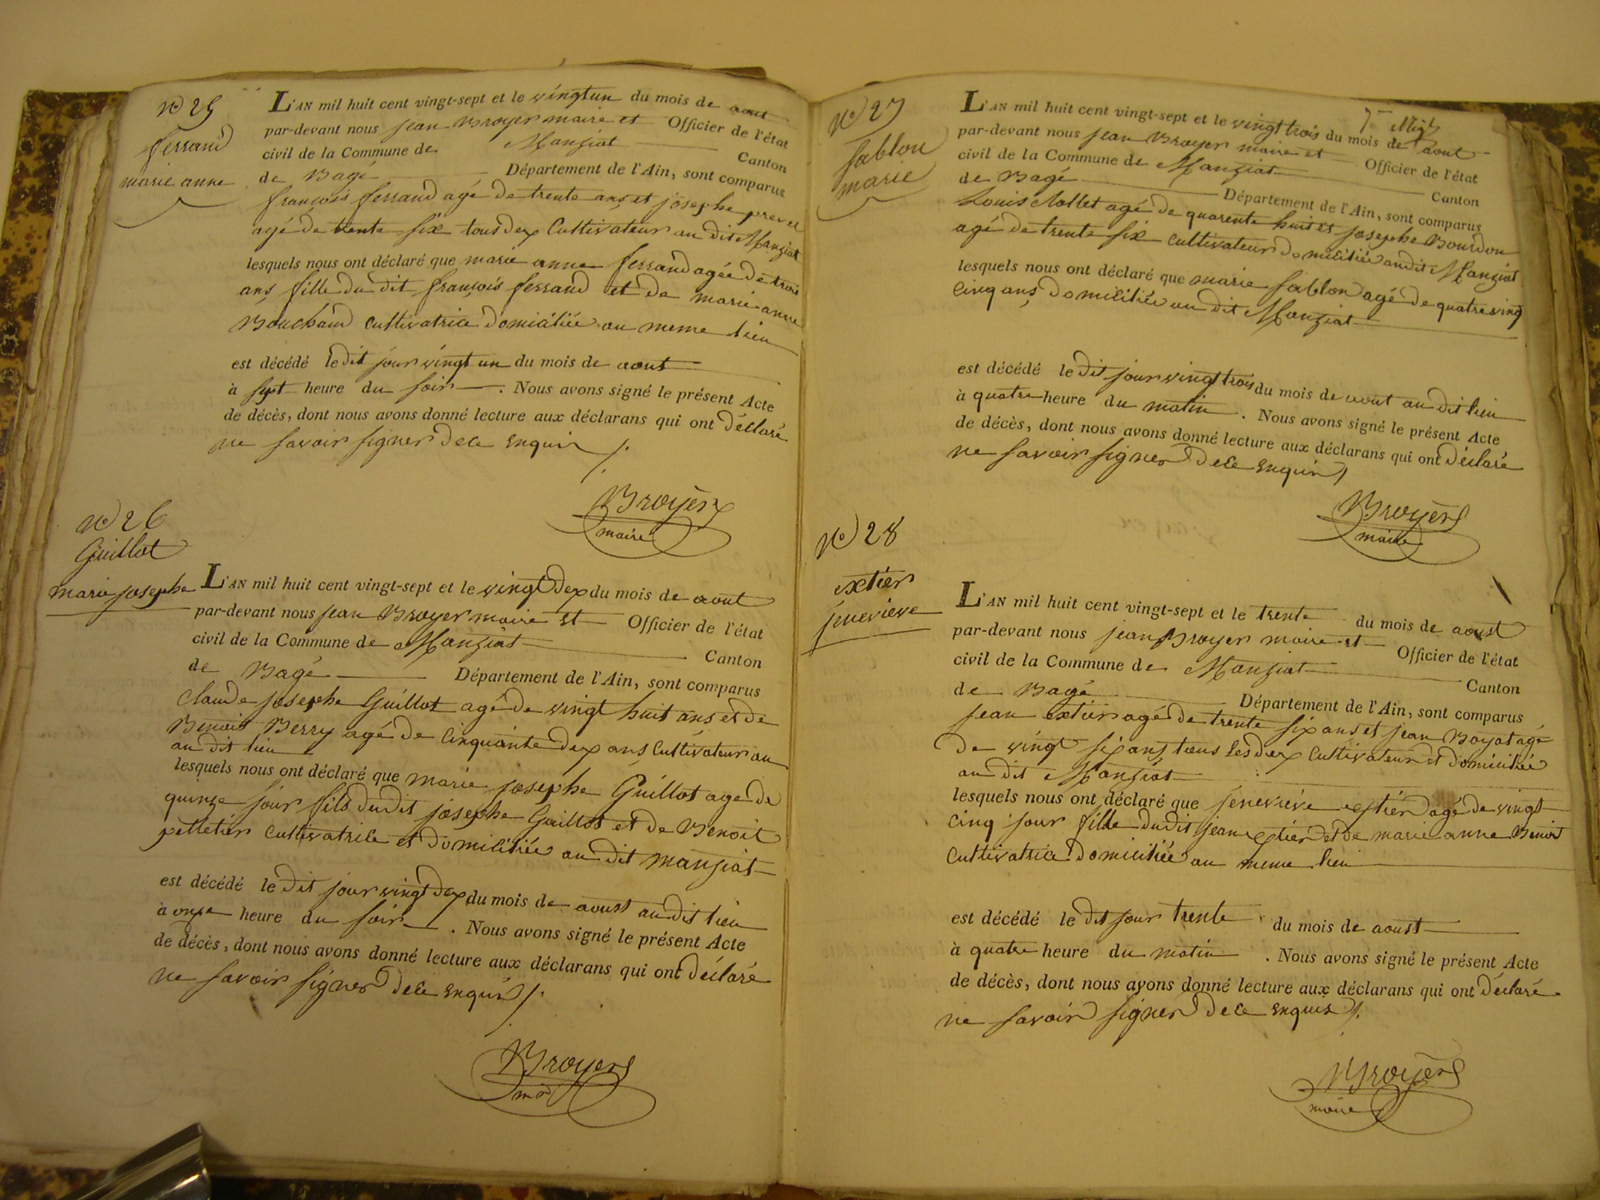 N° 25
ferrand
marie anne
L'AN mil huit cent vingt-sept et le vingtun du mois de aout
par-devant nous jean Broyer maire et Officier de l'état
civil de la Commune de Manziat Canton
de Bagé Département de l'Ain, sont comparus
françois ferrand agé de trente ans et josephe prevel
agé de trente six tous dex Cultivateur au dit Manziat
lesquels nous ont déclaré que marie anne ferrand agée de trois
ans fille du dit françois ferrand et de marie anne
Bouchard cultivatrice domicilié au meme lieu
est décédé le dit jour vingt un du mois de aout
à sept heure du soir. Nous avons signé le présent Acte
de décès, dont nous avons donné lecture aux déclarans qui ont déclaré
ne savoir signer de ce enquir /.
Broyer
maire
N° 26
Guillot
marie josephe
L'AN mil huit cent vingt-sept et le vingt dex du mois de aout
par-devant nous jean Broyer maire et Officier de l'état
civil de la Commune de Manziat Canton
de Bagé Département de l'Ain, sont comparus
Claude josephe Guillot agé de vingt huit ans et de
Benoit Berry agé de cinquante dex ans Cultivateur au
au dit lieu
lesquels nous ont déclaré que marie josephe Guillot age de
quinze jour fils dudit josephe Guillot et de Benoit
pelletier cultivatrice et domiciliée au dit manziat
est décédé le dit jour vingt dex du mois de aoust au dit lieu
à onze heure du soir. Nous avons signé le présent Acte
de décès, dont nous avons donné lecture aux déclarans qui ont déclaré
ne savoir signer de ce enquir /.
Broyer
N° 27
fablon
marie
L'AN mil huit cent vingt-sept et le vingt trois du mois de aout
par-devant nous jean Broyer maire et Officier de l'état
civil de la Commune de Manziat Canton
de Bagé Département de l'Ain, sont comparus
Louis agé de quarente huit et josephe Bourdon
agé de trente six cultivateur domiciliée au dit Manziat
lesquels nous ont déclaré que marie fablon agé de quatre ving
cinq ans domiciliée au dit Manziat
est décédé le dit jour vingt trois du mois de aout au dit lieu
à quatre heure du matin. Nous avons signé le présent Acte
de décès, dont nous avons donné lecture aux déclarans qui ont déclaré
ne savoir signer de ce enquir
Broyer
maire
N° 28
extier
jenevieve
L'AN mil huit cent vingt-sept et le trente du mois de aoust
par-devant nous jean Broyer maire et Officier de l'état
civil de la Commune de Manziat Canton
de Bagé Département de l'Ain, sont comparus
jean extier agé de trente six ans et jean Boyat agé
de vingt six ans tous les dex cultivateur et domiciliée
au dit Manziat
lesquels nous ont déclaré que jenevieve extier agé de vingt
cinq jour fille dudit jean extier et de marie anne Benoit
Cultivatrice domiciliée au meme lieu
est décédé le dit jour trente du mois de aoust
à quatre heure du matin. Nous avons signé le présent Acte
de décès, dont nous avons donné lecture aux déclarans qui ont déclaré
ne savoir signer de ce enquir /.
Broyer
maire